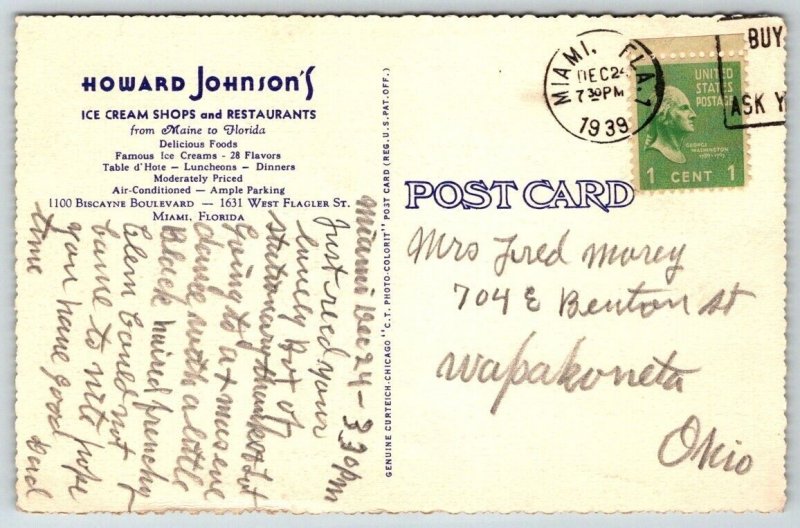 HOWARD JOHNSON'S
ICE CREAM SHOPS and RESTAURANTS
from Maine to Florida
Delicious Foods
Famous Ice Creams - 28 Flavors
Table d'Hote — Luncheons — Dinners
Moderately Priced
Air-Conditioned — Ample Parking
1100 BISCAYNE BOULEVARD — 1631 WEST FLAGLER ST.
MIAMI, FLORIDA
Miami Dec 24 - 3 30 PM
Just recd your
lovely Box of
stationery thanks a lot
Going to a Xmas eve
dance with a little
Black haired frenchy
Clem could not
come to nite hope
you have good
time Dad
GENUINE CURTEICH-CHICAGO "C.T. PHOTO-COLORIT" POST CARD (REG. U.S. PAT. OFF.)
POST CARD
MIAMI, FLA. 1
DEC 24
7 30 PM
1939
BUY
ASK Y
UNITED
STATES
POSTAGE
GEORGE
WASHINGTON
1 CENT 1
Mrs Fred Morey
704 E Benton st
Wapakoneta
Ohio